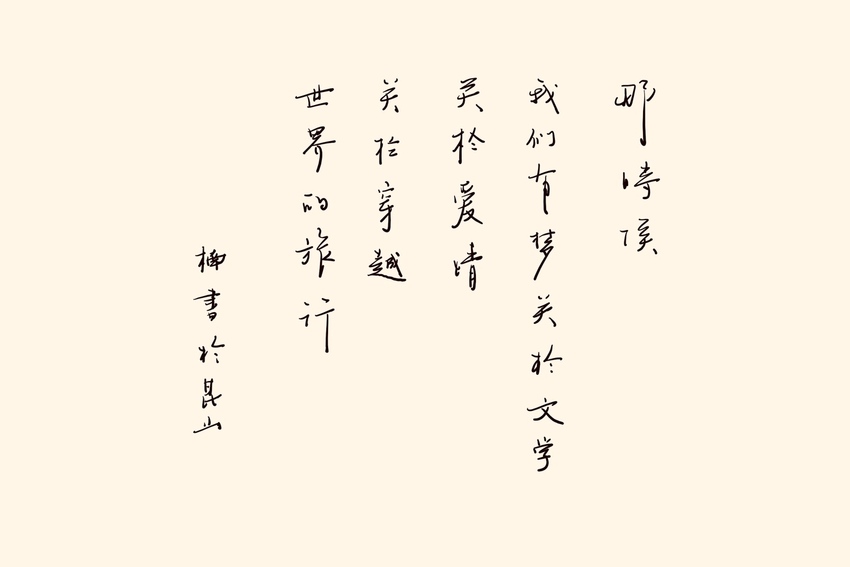 那時候
我们有梦关於文学
关於爱情
关於穿越
世界的旅行
楠書於昆山